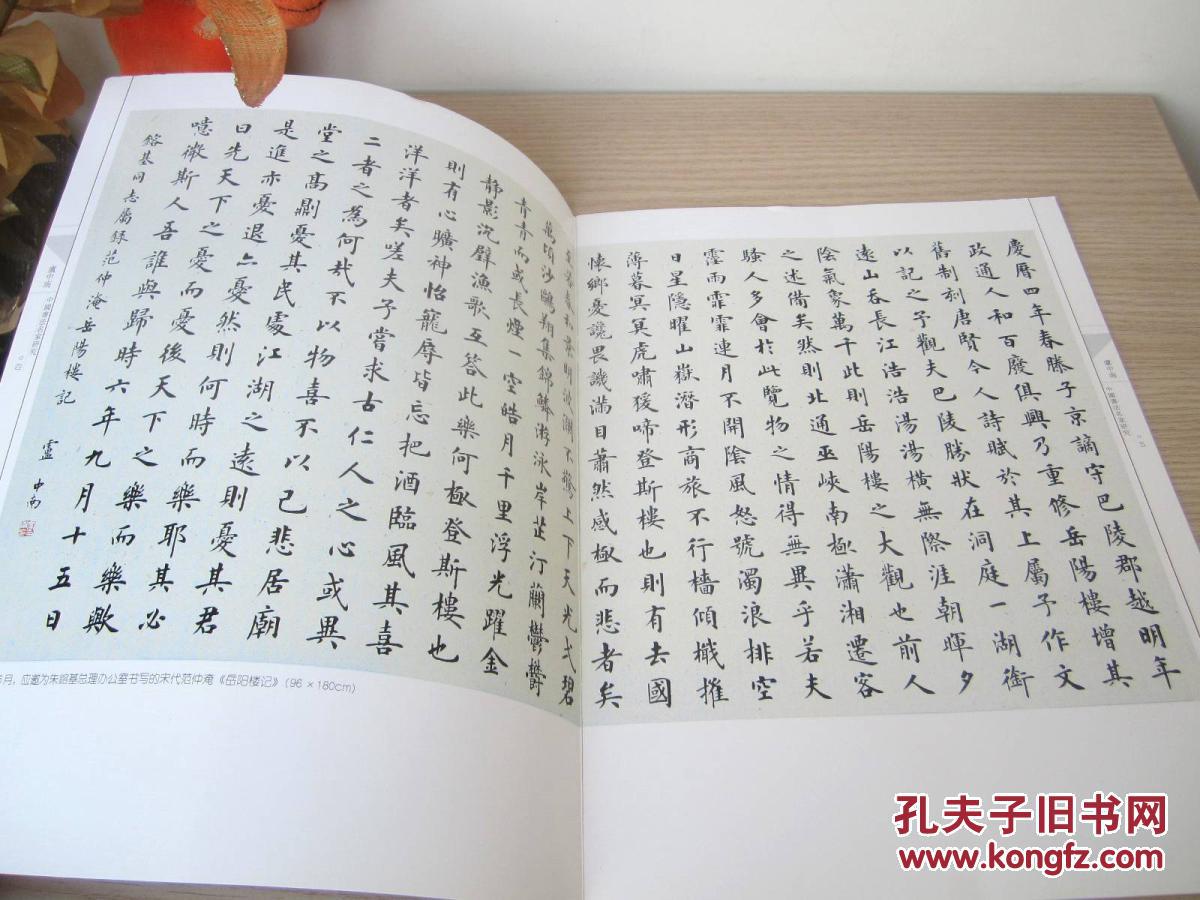 慶曆四年春滕子京謫守巴陵郡越明年
政通人和百廢俱興乃重修岳陽樓增其
舊制刻唐賢今人詩賦於其上屬予作文
以記之予觀夫巴陵勝狀在洞庭一湖銜
遠山吞長江浩浩湯湯橫無際涯朝暉夕
陰氣象萬千此則岳陽樓之大觀也前人
之述備矣然則北通巫峽南極瀟湘遷客
騷人多會於此覽物之情得無異乎若夫
霪雨霏霏連月不開陰風怒號濁浪排空
日星隱曜山嶽潛形商旅不行檣傾檝摧
薄暮冥冥虎嘯猨啼登斯樓也則有去國
懷鄉憂讒畏譏滿目蕭然感極而悲者矣
至若春和景明波瀾不驚上下天光弌碧
萬頃沙鷗翔集錦鱗游泳岸芷汀蘭鬱鬱
青青而或長煙一空皓月千里浮光躍金
静影沉璧漁歌互答此樂何極登斯樓也
則有心曠神怡寵辱皆忘把酒臨風其喜
洋洋者矣嗟夫予嘗求古仁人之心或異
二者之為何哉不以物喜不以己悲居廟
堂之高則憂其民處江湖之遠則憂其君
是進亦憂退亦憂然則何時而樂耶其必
曰先天下之憂而憂後天下之樂而樂歟
噫微斯人吾誰與歸時六年九月十五日
鎔基同志屬録范仲淹岳陽樓記
盧中南
月，应邀为朱镕基总理办公室书写的宋代范仲淹《岳阳楼记》(96×180cm)
盧中南 中國書法名家研究
盧中南 中國書法名家研究
孔夫子旧书网
www.kongfz.com